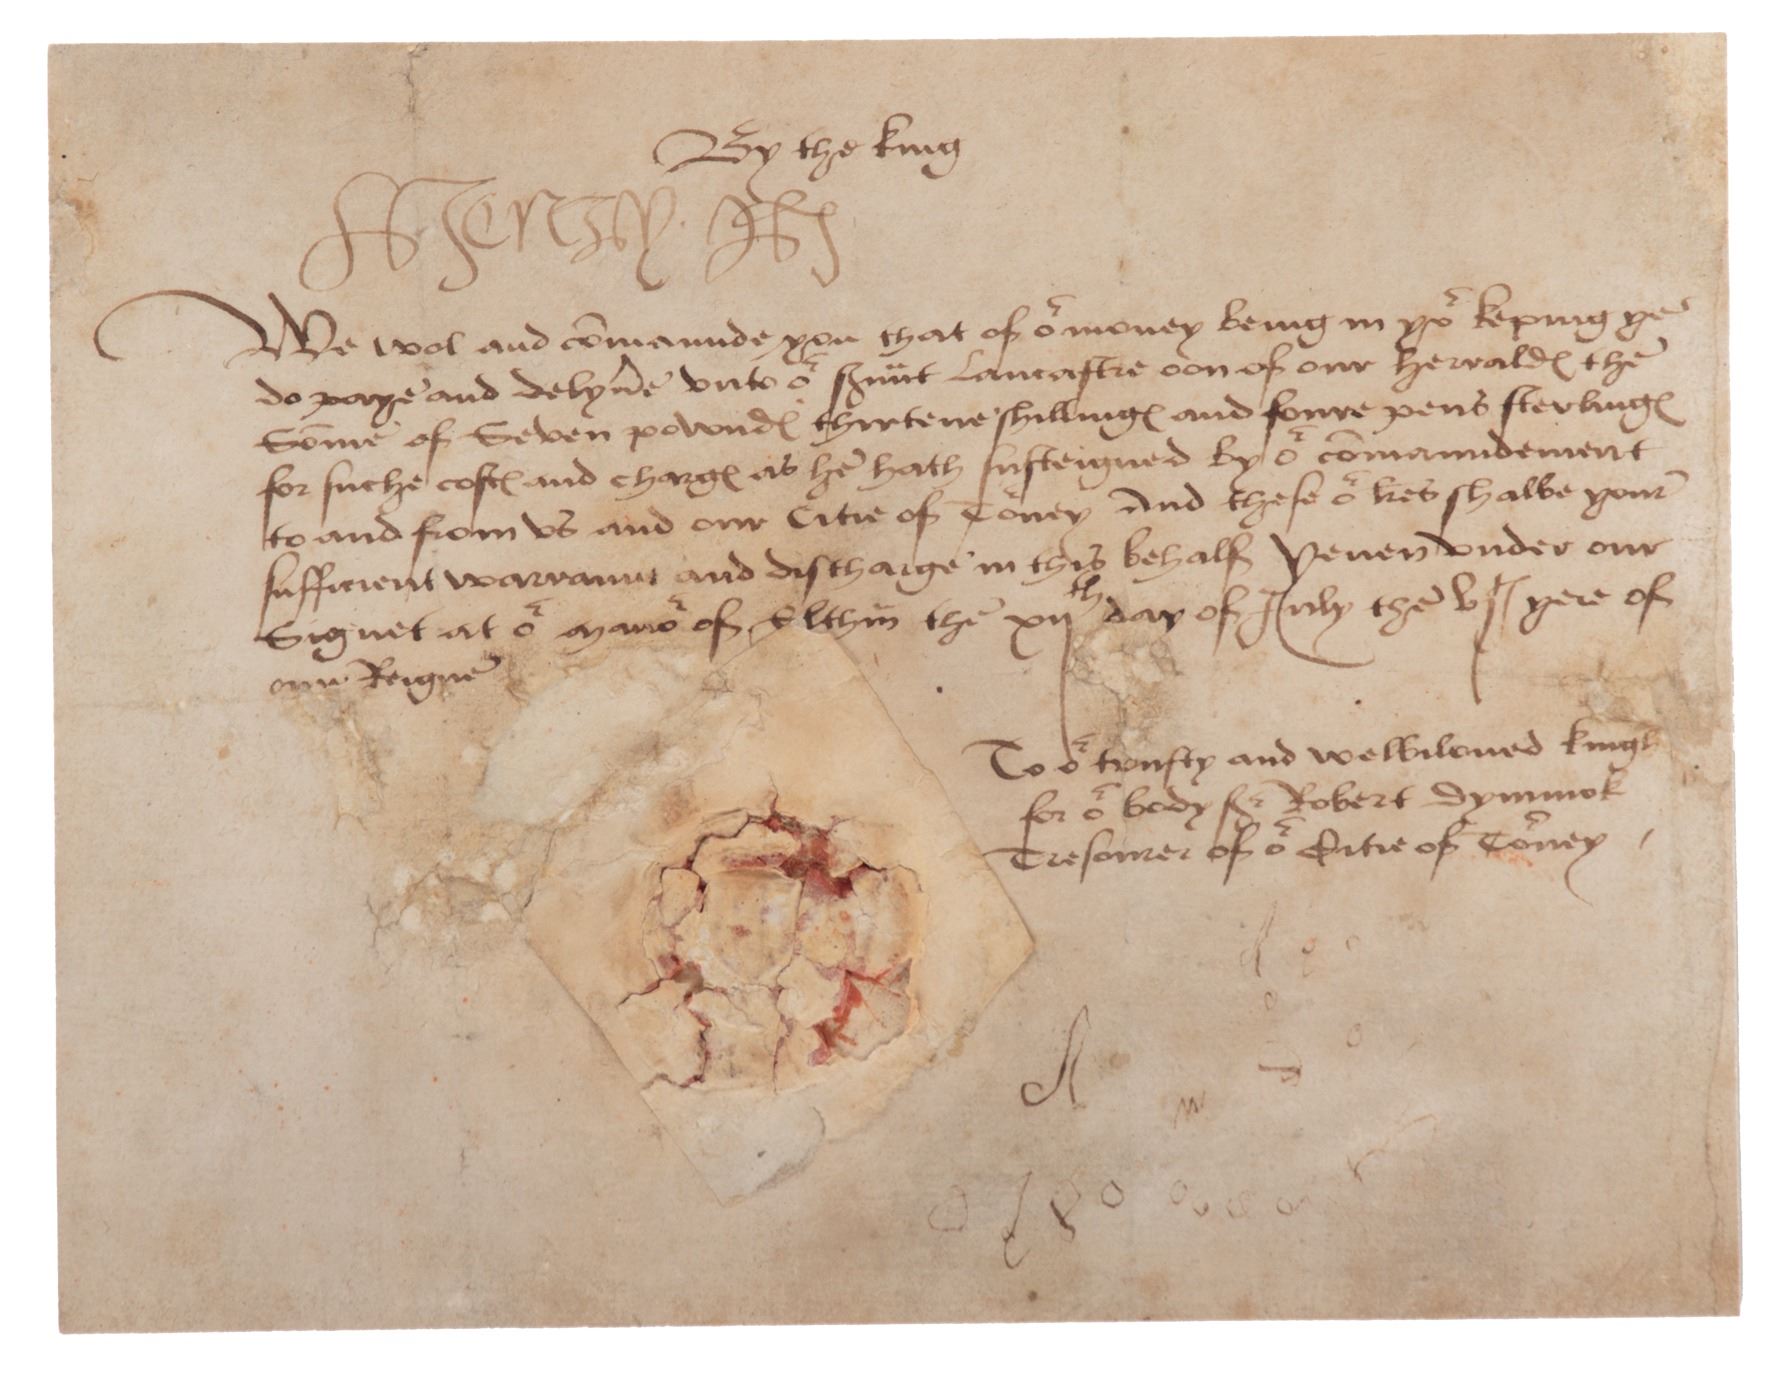 By the king
Henry R
We wol and cōmaunde you that of oʳ money being in yoʳ keping ye
do paye and delyūe vnto oʳ sūnt Lancastre oon of our herraldꝭ the
Sōme of Seven powndꝭ thirtene shillingꝭ and foure pens sterlingꝭ
for suche costꝭ and chargꝭ as he hath susteigned by oʳ cōmaundement
to and from vs and our Citie of Toʳney And these oʳ lr̄es shalbe your
sufficient warraunt and discharge in this behalf Yeuen vnder our
Signet at oʳ Manoʳ of Elthm̄ the xijᵗʰ day of July the vjᵗ yere of
our Reigne
To oʳ trusty and welbiloued knight
for oʳ body sʳ Robert Dymmok
Tresourer of oʳ Citie of Toʳney